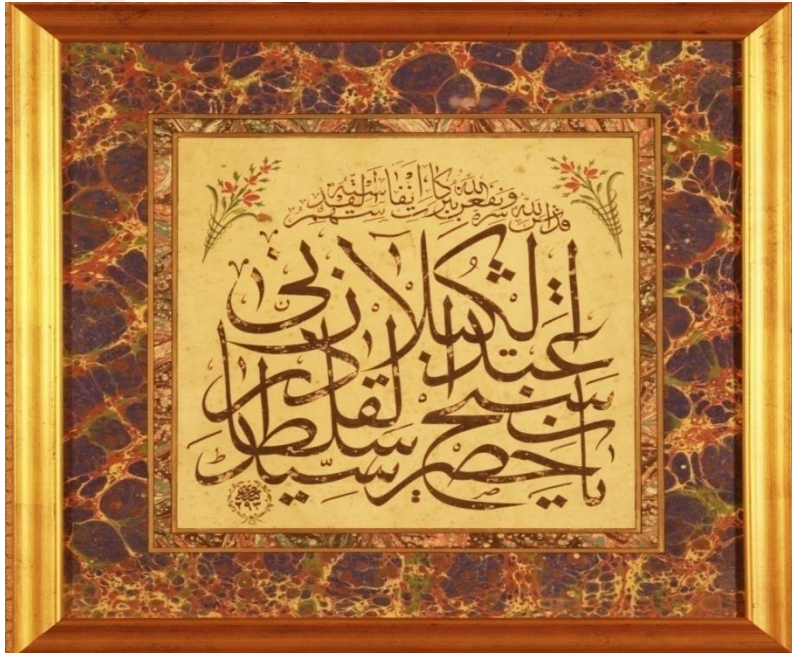 قدس الله سره ونفعنا الله ببركات انفاسهم القدسية
يا حضرت سيد سلطان شيخ عبد القادر الكيلاني